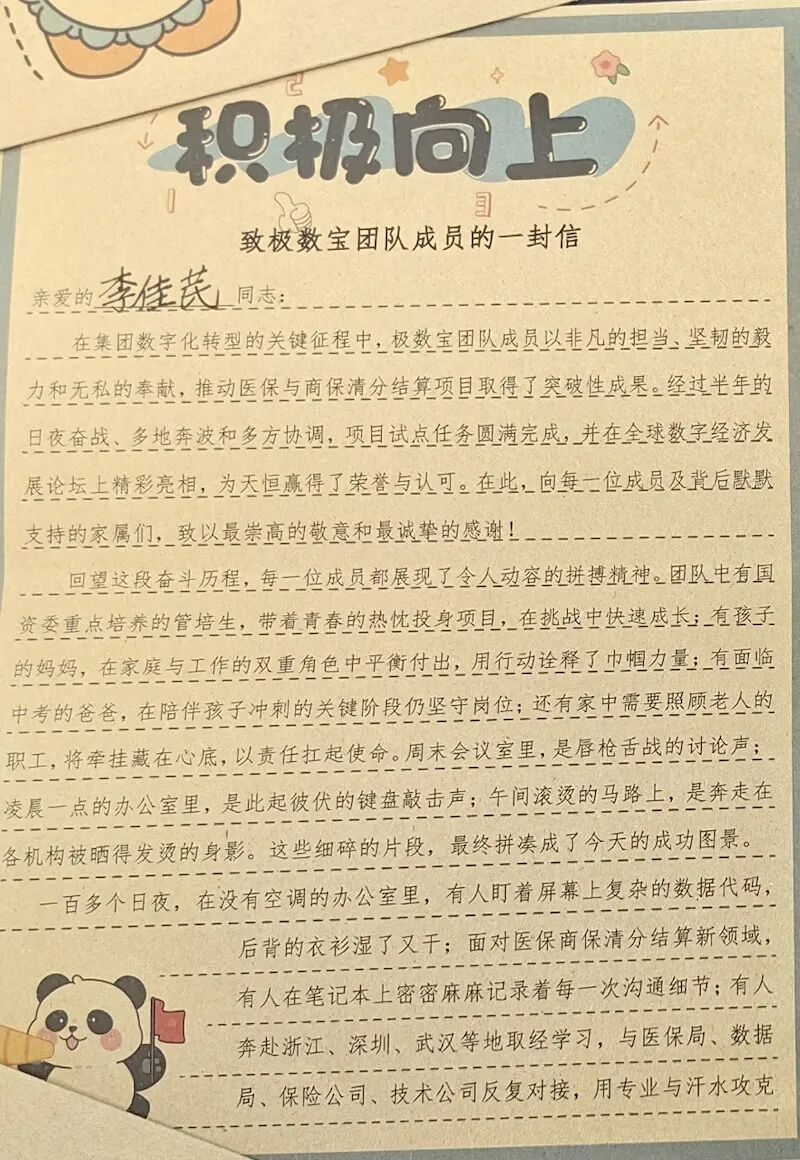 积极向上
致极数宝团队成员的一封信
亲爱的李佳芪同志：
在集团数字化转型的关键征程中，极数宝团队成员以非凡的担当、坚韧的毅
力和无私的奉献，推动医保与商保清分结算项目取得了突破性成果。经过半年的
日夜奋战、多地奔波和多方协调，项目试点任务圆满完成，并在全球数字经济发
展论坛上精彩亮相，为天恒赢得了荣誉与认可。在此，向每一位成员及背后默默
支持的家属们，致以最崇高的敬意和最诚挚的感谢！
回望这段奋斗历程，每一位成员都展现了令人动容的拼搏精神。团队中有国
资委重点培养的管培生，带着青春的热忱投身项目，在挑战中快速成长；有孩子
的妈妈，在家庭与工作的双重角色中平衡付出，用行动诠释了巾帼力量；有面临
中考的爸爸，在陪伴孩子冲刺的关键阶段仍坚守岗位；还有家中需要照顾老人的
职工，将牵挂藏在心底，以责任扛起使命。周末会议室里，是唇枪舌战的讨论声；
凌晨一点的办公室里，是此起彼伏的键盘敲击声；午间滚烫的马路上，是奔走在
各机构被晒得发烫的身影。这些细碎的片段，最终拼凑成了今天的成功图景。
一百多个日夜，在没有空调的办公室里，有人盯着屏幕上复杂的数据代码，
后背的衣衫湿了又干；面对医保商保清分结算新领域，
有人在笔记本上密密麻麻记录着每一次沟通细节；有人
奔赴浙江、深圳、武汉等地取经学习，与医保局、数据
局、保险公司、技术公司反复对接，用专业与汗水攻克